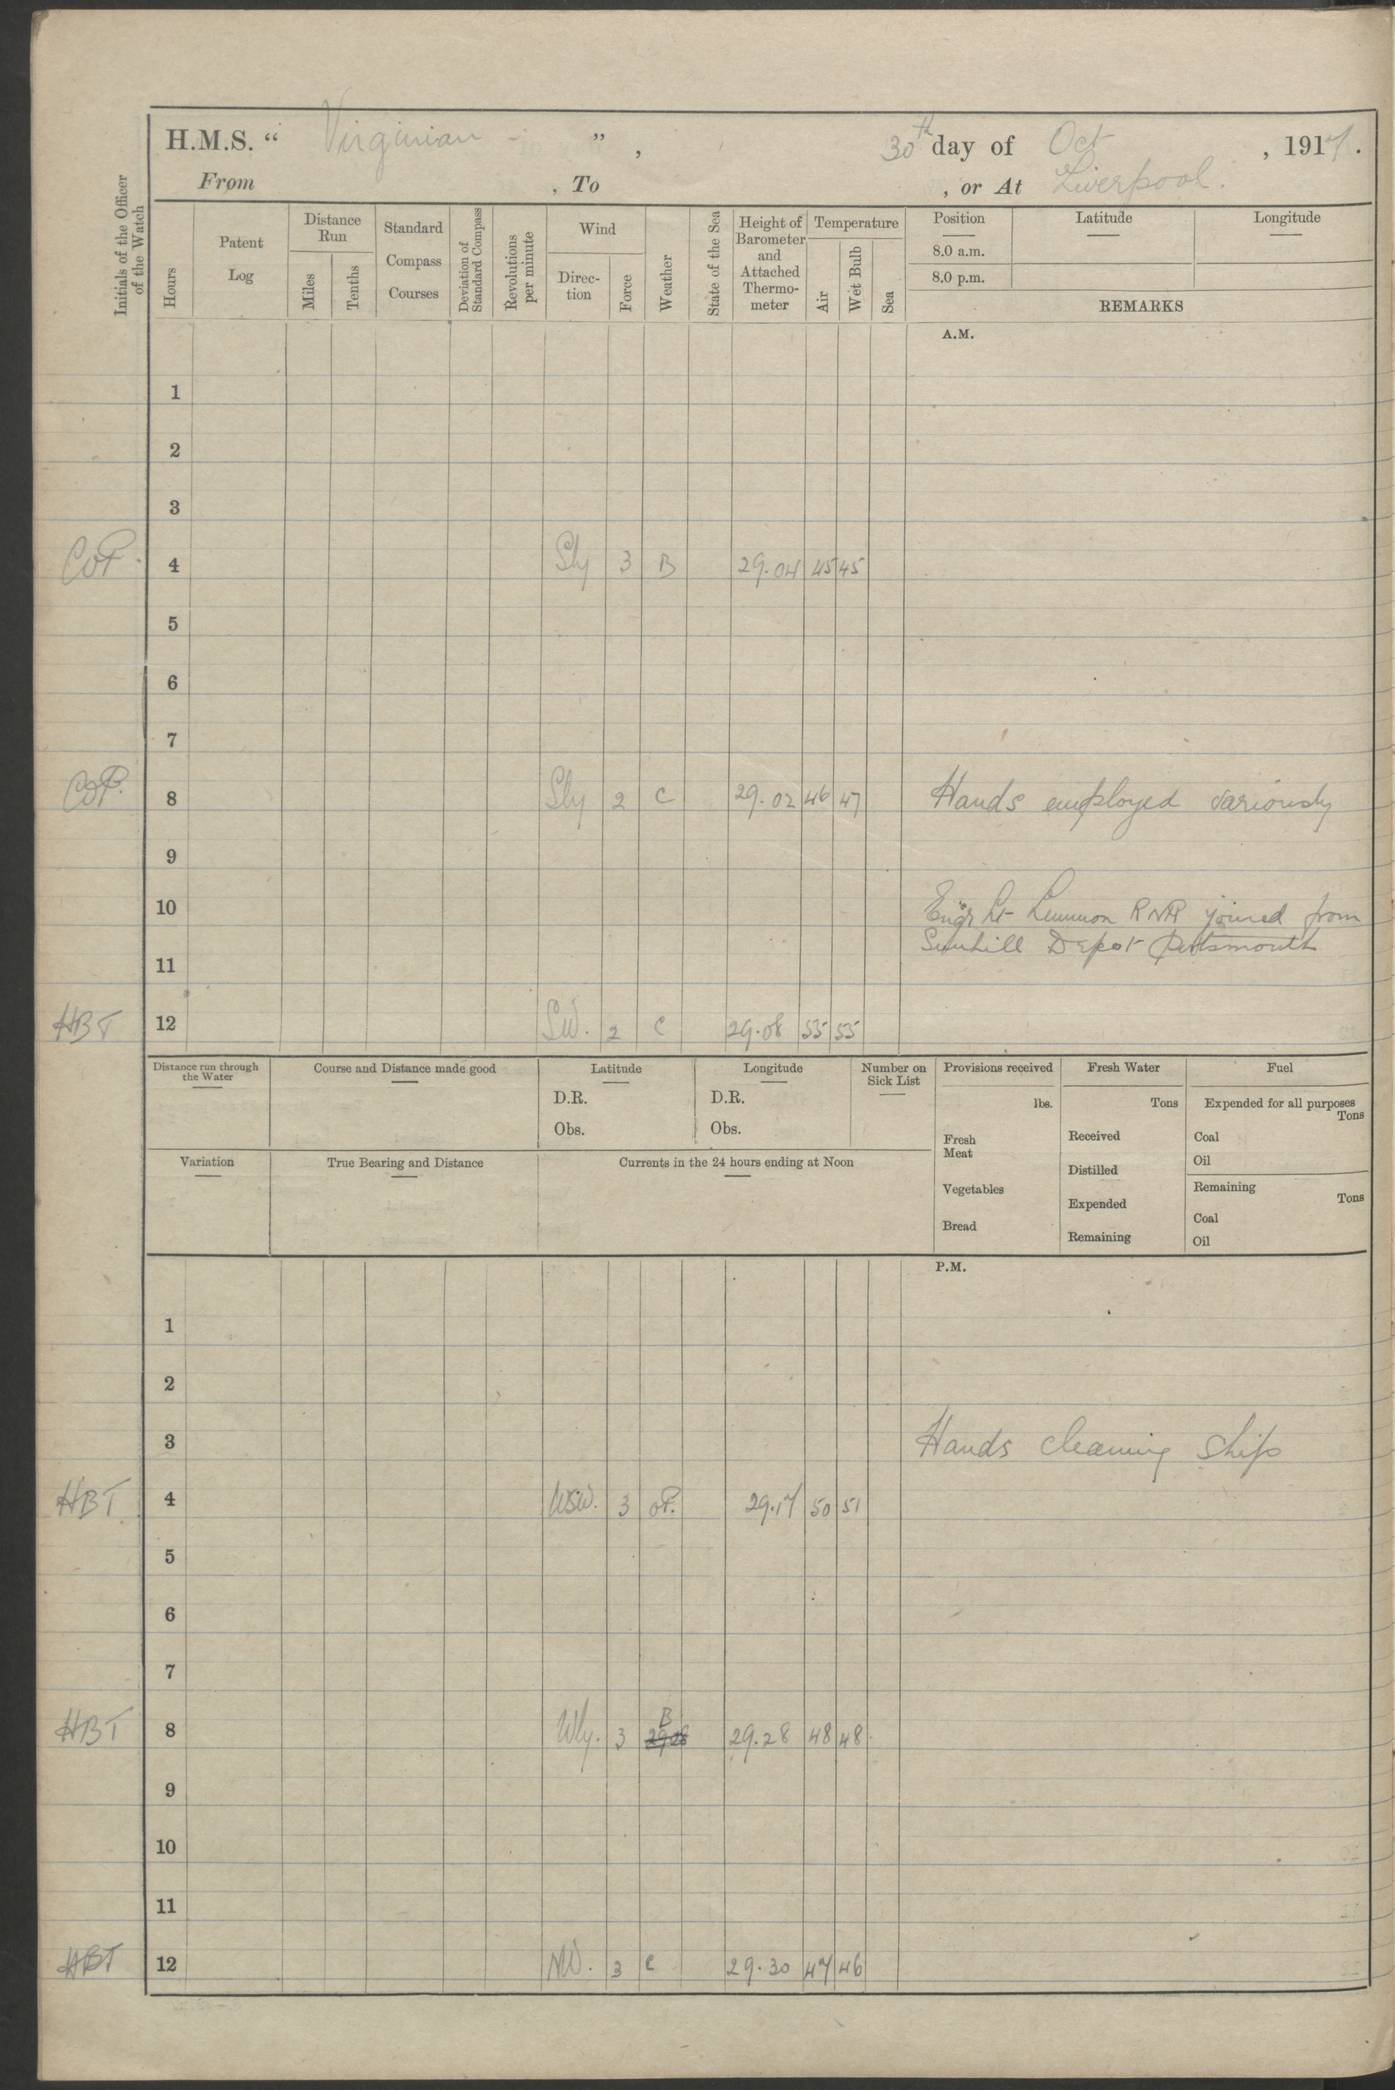 H.M.S. “ Virginian ” , 30th day of Oct , 1917.
From , To , or At Liverpool.
Initials of the Officer of the Watch
Hours
Patent Log
Distance Run
Miles
Tenths
Standard Compass Courses
Deviation of Standard Compass
Revolutions per minute
Wind
Direc-tion
Force
Weather
State of the Sea
Height of Barometer and Attached Thermo-meter
Temperature
Air
Wet Bulb
Sea
Position Latitude Longitude
8.0 a.m.
8.0 p.m.
REMARKS
A.M.
1
2
3
4 Sly 3 B 29.04 45 45
5
6
7
8 Sly 2 C 29.02 46 47 Hands employed variously
9
10 Engr Lt Lennon RNR joined from
Sunhill Depot Portsmouth
11
HBT 12 SW. 2 C 29.08 55 55
Distance run through the Water
Course and Distance made good
Latitude
D.R.
Obs.
Longitude
D.R.
Obs.
Number on Sick List
Provisions received
lbs.
Fresh Meat
Vegetables
Bread
Fresh Water
Tons
Received
Distilled
Expended
Remaining
Fuel
Expended for all purposes
Tons
Coal
Oil
Remaining
Tons
Coal
Oil
Variation
True Bearing and Distance
Currents in the 24 hours ending at Noon
P.M.
1
2
3 Hands cleaning ship
HBT 4 WSW. 3 oP. 29.17 50 51
5
6
7
HBT 8 Wly. 3 B 29.28 29.28 48 48
9
10
11
HBT 12 NW. 3 C 29.30 47 46